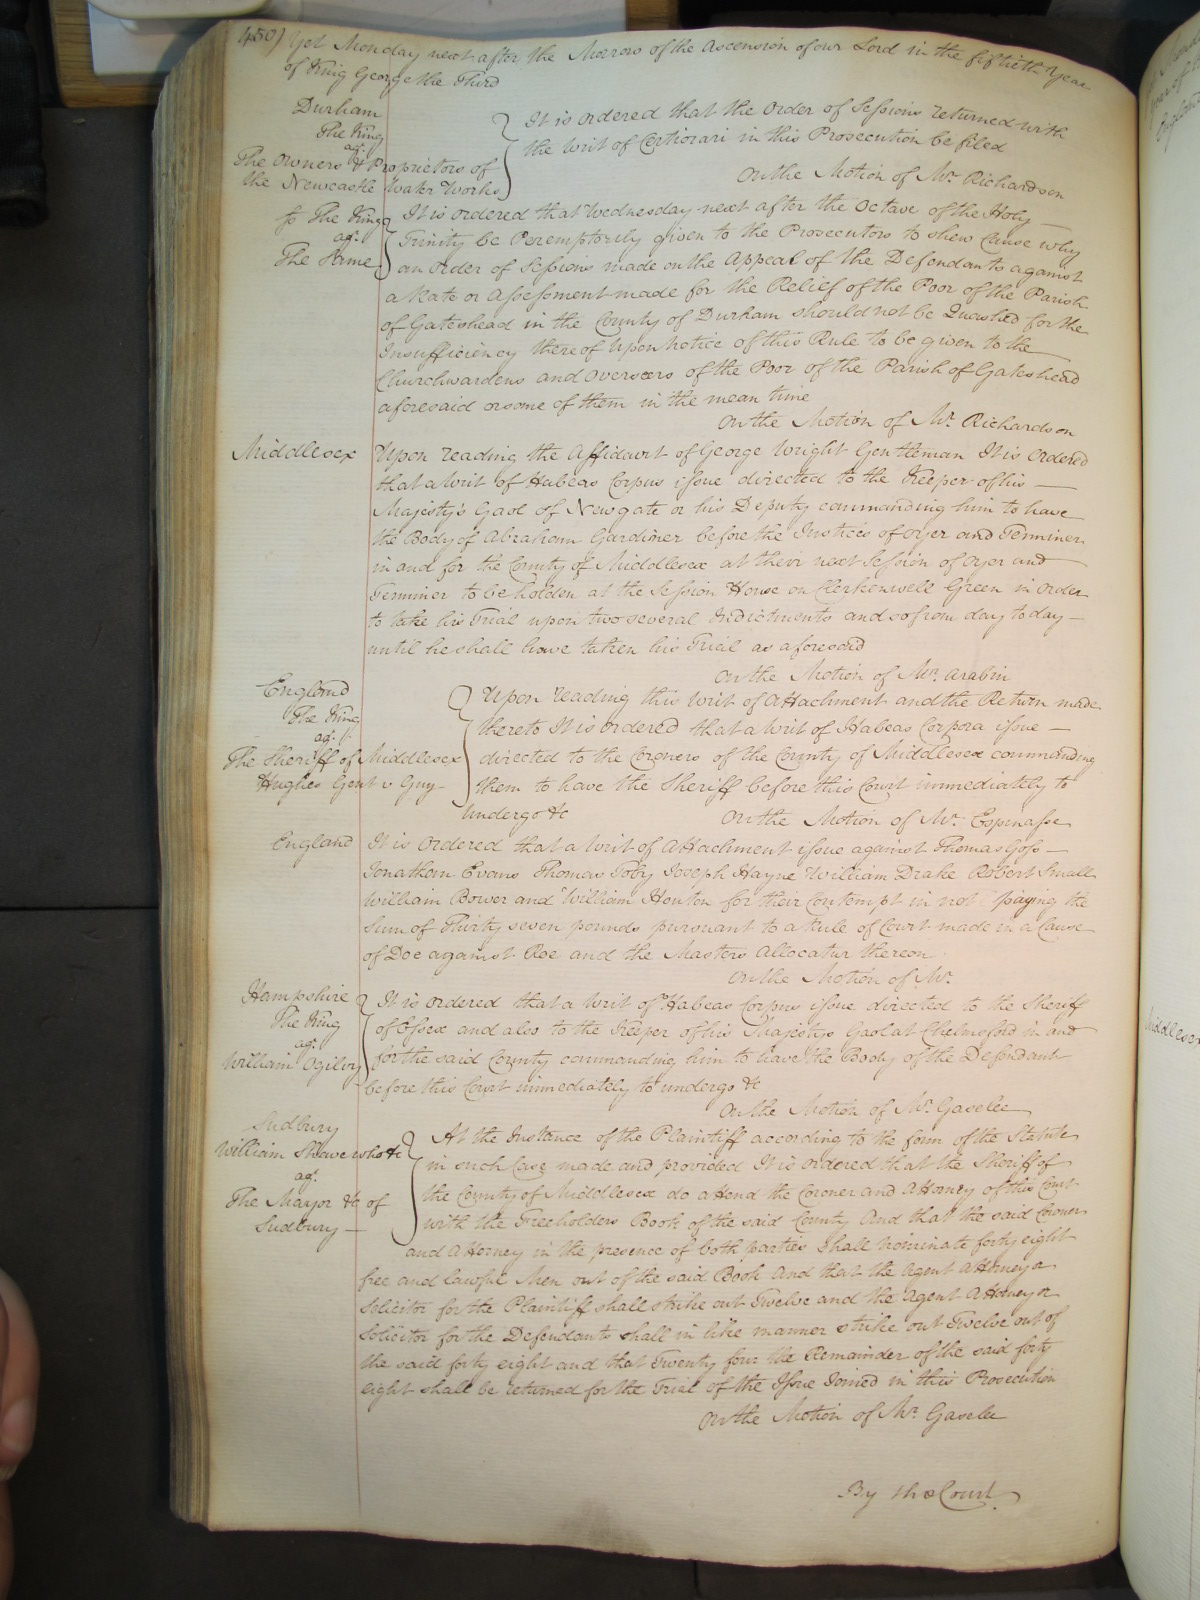 450) Yet Monday next after the Morrow of the Ascension of our Lord in the fiftieth Year
of King George the Third
Durham
The King
agt.
The Owners & Proprietors of
the Newcastle Water Works
It is ordered that the Order of Sessions returned with
the Writ of Certiorari in this Prosecution be filed
On the Motion of Mr. Richardson
The King
agt.
The Same
It is ordered that Wednesday next after the Octave of the Holy
Trinity be Peremptorily given to the Prosecutors to shew Cause why
an Order of Sessions made on the Appeal of the Defendants against
a Rate or Assessment made for the Relief of the Poor of the Parish
of Gateshead in the County of Durham should not be Quashed for the
Insufficiency thereof Upon Notice of this Rule to be given to the
Churchwardens and Overseers of the Poor of the Parish of Gateshead
aforesaid or some of them in the mean time
On the Motion of Mr. Richardson
Middlesex
Upon reading the Affidavit of George Wright Gentleman It is Ordered
that a Writ of Habeas Corpus issue directed to the Keeper of his
Majesty's Gaol of Newgate or his Deputy commanding him to have
the Body of Abraham Gardiner before the Justices of Oyer and Terminer
in and for the County of Middlesex at their next Session of Oyer and
Terminer to be holden at the Session House on Clerkenwell Green in Order
to take his Trial upon two several Indictments and so from day to day
until he shall have taken his Trial as aforesaid
On the Motion of Mr. Arabin
England
The King
agt.
The Sheriff of Middlesex
Hughes Gent v Guy
Upon reading this Writ of Attachment and the Return made
thereto It is ordered that a Writ of Habeas Corpora issue
directed to the Coroners of the County of Middlesex commanding
them to have the Sheriff before this Court immediately to
undergo &c
On the Motion of Mr. Espinasse
England
It is Ordered that a Writ of Attachment issue against Thomas Goss
Jonathan Evans Thomas Toby Joseph Hayne William Drake Robert Small
William Bower and William Houton for their Contempt in not paying the
Sum of Thirty seven pounds pursuant to a Rule of Court made in a Cause
of Doe against Roe and the Masters Allocatur thereon
On the Motion of Mr.
Hampshire
The King
agt.
William Ogilvy
It is ordered that a Writ of Habeas Corpus issue directed to the Sheriff
of Essex and also to the Keeper of his Majestys Gaol at Chelmsford in and
for the said County commanding him to have the Body of the Defendant
before this Court immediately to undergo &c
On the Motion of Mr. Gaselee
Sudbury
William Shave who &c
agt.
The Mayor &c of
Sudbury
At the Instance of the Plaintiff according to the form of the Statute
in such Case made and provided It is ordered that the Sheriff of
the County of Middlesex do attend the Coroner and Attorney of this Court
with the Freeholders Book of the said County And that the said Coroner
and Attorney in the presence of both parties shall nominate forty eight
free and lawful Men out of the said Book And that the Agent Attorney or
Solicitor for the Plaintiff shall strike out Twelve and the Agent Attorney or
Solicitor for the Defendants shall in like manner strike out Twelve out of
the said forty eight and that Twenty four the Remainder of the said forty
eight shall be returned for the Trial of the Issue Joined in this Prosecution
On the Motion of Mr. Gaselee
By the Court
Middlesex